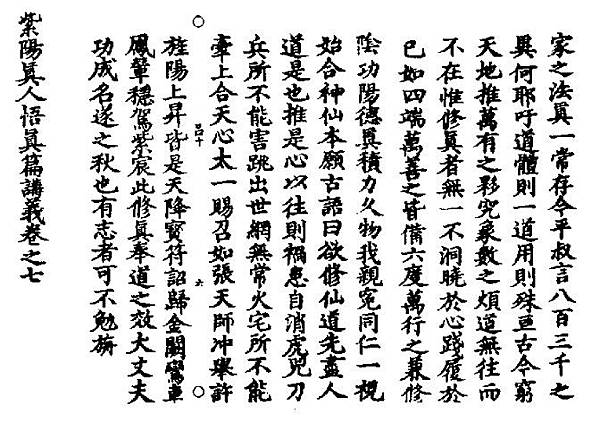 家之法真一常存今平叔言八百三千之
異何耶吁道體則一道用則殊亘古今窮
天地推萬有之夥究象數之煩道無往而
不在惟修真者無一不洞曉於心踐履於
已如四端萬善之皆備六度萬行之兼修
陰功陽德真積力久物我親寃同仁一視
始合神仙本願古語曰欲修仙道先盡人
道是也推是心以往則禍患自消虎兕刀
兵所不能害跳出世網無常火宅所不能
牽上合天心太一賜召如張天師冲舉許
旌陽上昇皆是天降寶符詔歸金闕鸞車
鳳輦穩駕紫宸此修真奉道之效大丈夫
功成名遂之秋也有志者可不勉旃
紫陽真人悟真篇講義卷之七